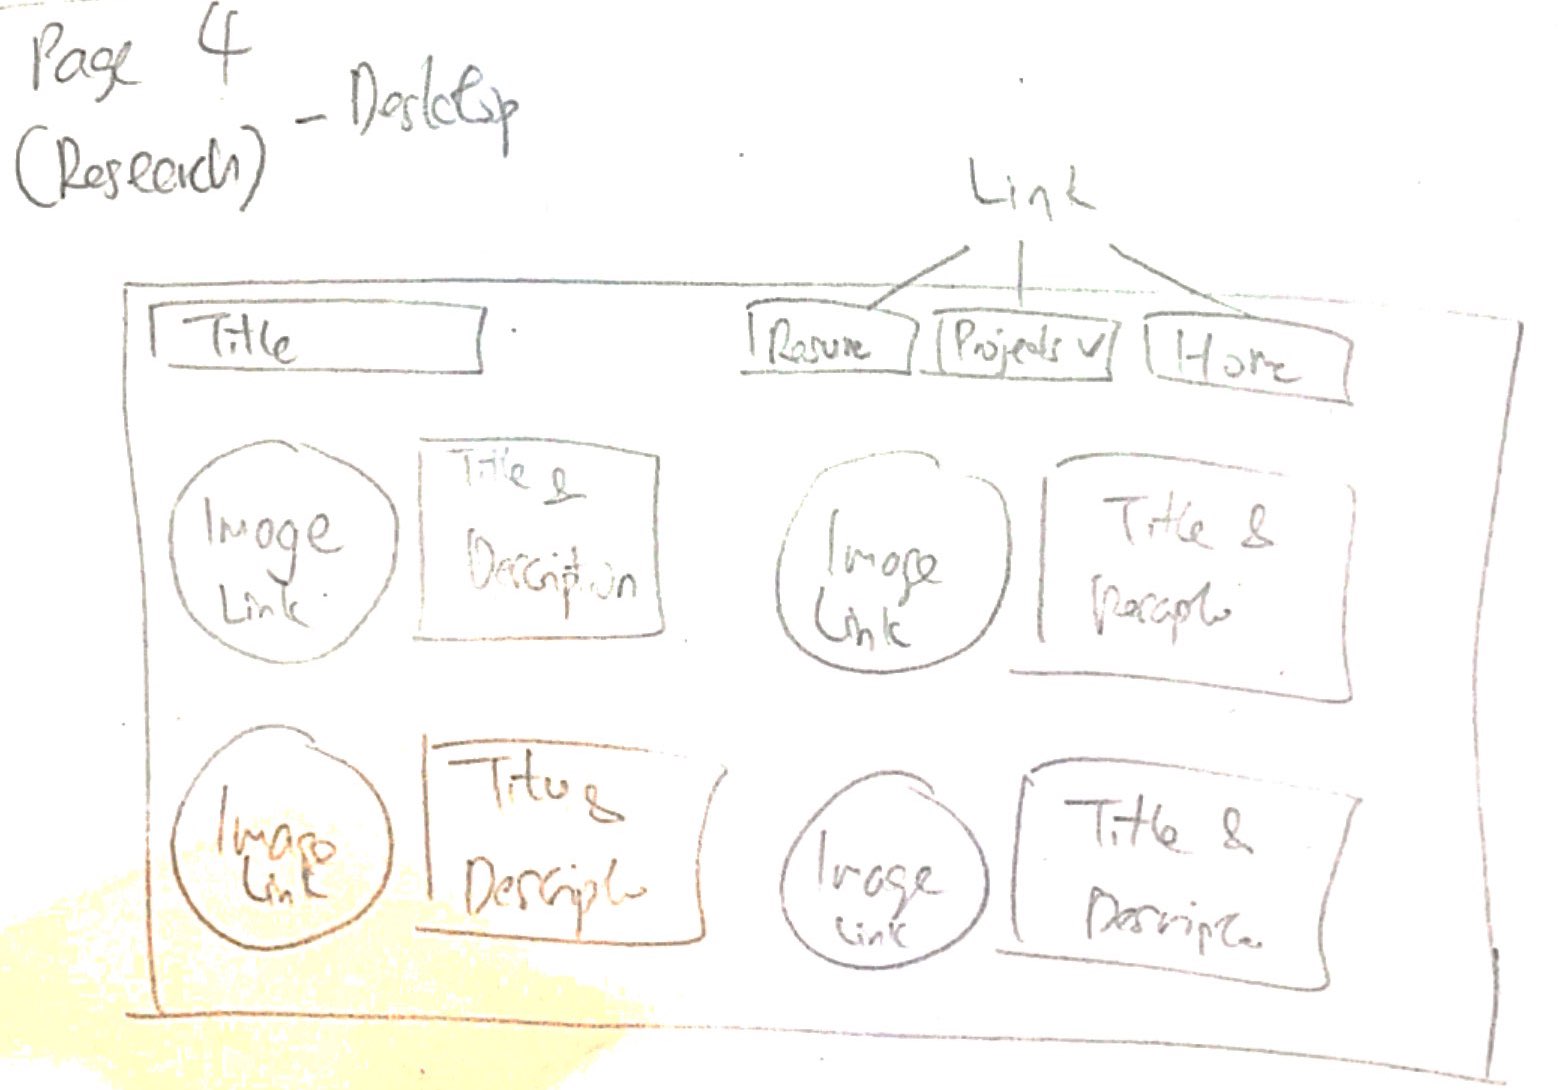 Page 4
(Research) - Desktop
Link
Title
Resume
Projects
Home
Image
Link
Title &
Description
Image
Link
Title &
Image
Link
Title &
Image
Link
Title &